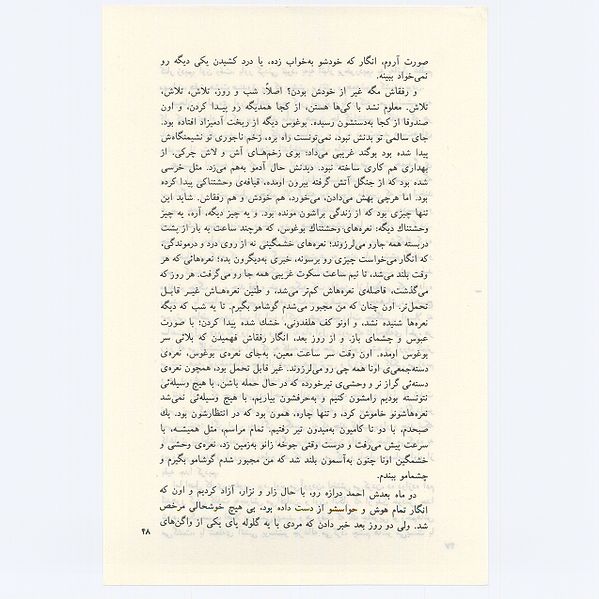 صورت آروم، انگار که خودشو به‌خواب زده، یا درد کشیدن یکی دیگه رو
نمی‌خواد ببینه.
و رفقاش مگه غیر از خودش بودن؟ اصلاً. شب و روز، تلاش، تلاش،
تلاش. معلوم نشد با کی‌ها هستن، از کجا همدیگه رو پیدا کردن، و اون
صندوقا از کجا به‌دستشون رسیده. بوغوس دیگه از ریخت آدمیزاد افتاده بود.
جای سالمی تو بدنش نبود، نمی‌تونست راه بره، زخم ناجوری تو نشیمنگاه‌ش
پیدا شده بود بوگند غریبی می‌داد؛ بوی زخم‌های آش و لاش چرکی. از
بهداری هم کاری ساخته نبود. دیدنش حال آدمو به‌هم می‌زد. مثل خرسی
شده بود که از جنگل آتش گرفته بیرون اومده، قیافه‌ی وحشتناکی پیدا کرده
بود. اما هرچی بهش می‌دادن، می‌خورد، هم خودش و هم رفقاش. شاید این
تنها چیزی بود که از زندگی براشون مونده بود. و یه چیز دیگه، آره، یه چیز
وحشتناك دیگه: نعره‌های وحشتناك بوغوس، که هرچند ساعت یه بار از پشت
دربسته همه جارو می‌لرزوند؛ نعره‌های خشمگینی نه از روی درد و درموندگی،
که انگار می‌خواست چیزی رو برسونه، خبری به‌دیگرون بده؛ نعره‌هائی که هر
وقت بلند می‌شد، تا نیم ساعت سکوت غریبی همه جا رو می‌گرفت. هر روز که
می‌گذشت، فاصله‌ی نعره‌هاش کم‌تر می‌شد، و طنین نعره‌هـاش غیـر قابـل
تحمل‌تر. اون چنان که من مجبور می‌شدم گوشامو بگیرم. تا یه شب که دیگه
نعره‌ها شنیده نشد، و اونو کف هلفدونی، خشك شده پیدا کردن؛ با صورت
عبوس و چشمای باز. و از روز بعد، انگار رفقاش فهمیدن که بلائی سر
بوغوس اومده. اون وقت سر ساعت معین، به‌جای نعره‌ی بوغوس، نعره‌ی
دسته‌جمعی‌ی اونا همه چی رو می‌لرزوند. غیر قابل تحمل بود، همچون نعره‌ی
دسته‌ئی گراز نر و وحشی‌ی تیرخورده که در حال حمله باشن. با هیچ وسیله‌ئی
نتونسته بودیم رامشون کنیم و به‌حرفشون بیاریم، با هیچ وسیله‌ئی نمی‌شد
نعره‌هاشونو خاموش کرد، و تنها چاره، همون بود که در انتظارشون بود. یك
صبحدم، با دو تا کامیون به‌میدون تیر رفتیم. تمام مراسم، مثل همیشـه، با
سرعت پیش می‌رفت و درست وقتی جوخه زانو به‌زمین زد، نعره‌ی وحشی و
خشمگین اونا چنون به‌آسمون بلند شد که من مجبور شدم گوشامو بگیرم و
چشمامو ببندم.
دو ماه بعدش احمد درازه رو، با حال زار و نزار، آزاد کردیم و اون که
انگار تمام هوش و حواسشو از دست داده بود، بی هیچ خوشحالی مرخص
شد. ولی دو روز بعد خبر دادن که مردی با یه گلوله پای یکی از واگن‌های
۴۸